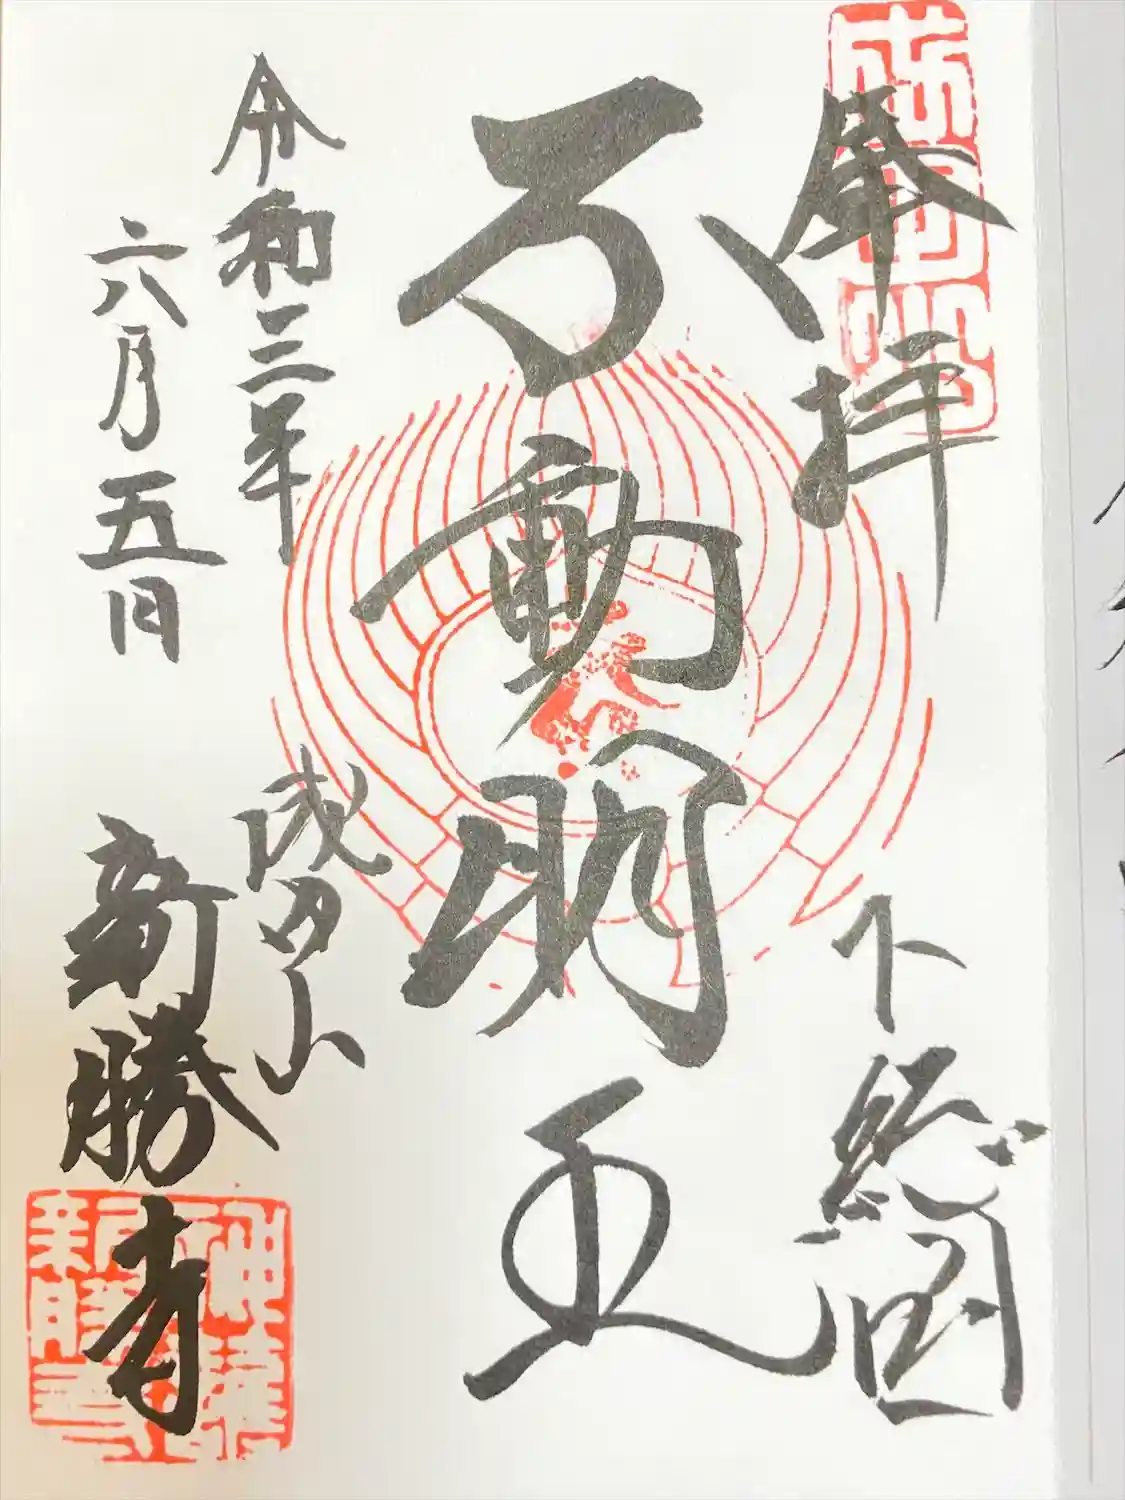 奉拝
下総国
不動明王
令和三年
六月五日
成田山
新勝寺
成田山